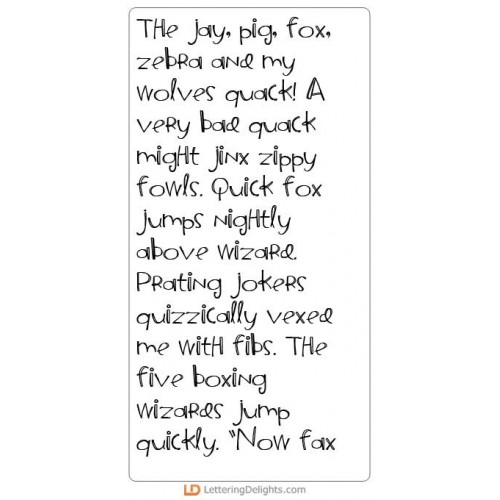 The jay, pig, fox,
zebra and my
wolves quack! A
very bad quack
might jinx zippy
fowls. Quick fox
jumps nightly
above wizard.
Prating jokers
quizzically vexed
me with fibs. The
five boxing
wizards jump
quickly. "Now fax
LD LetteringDelights.com